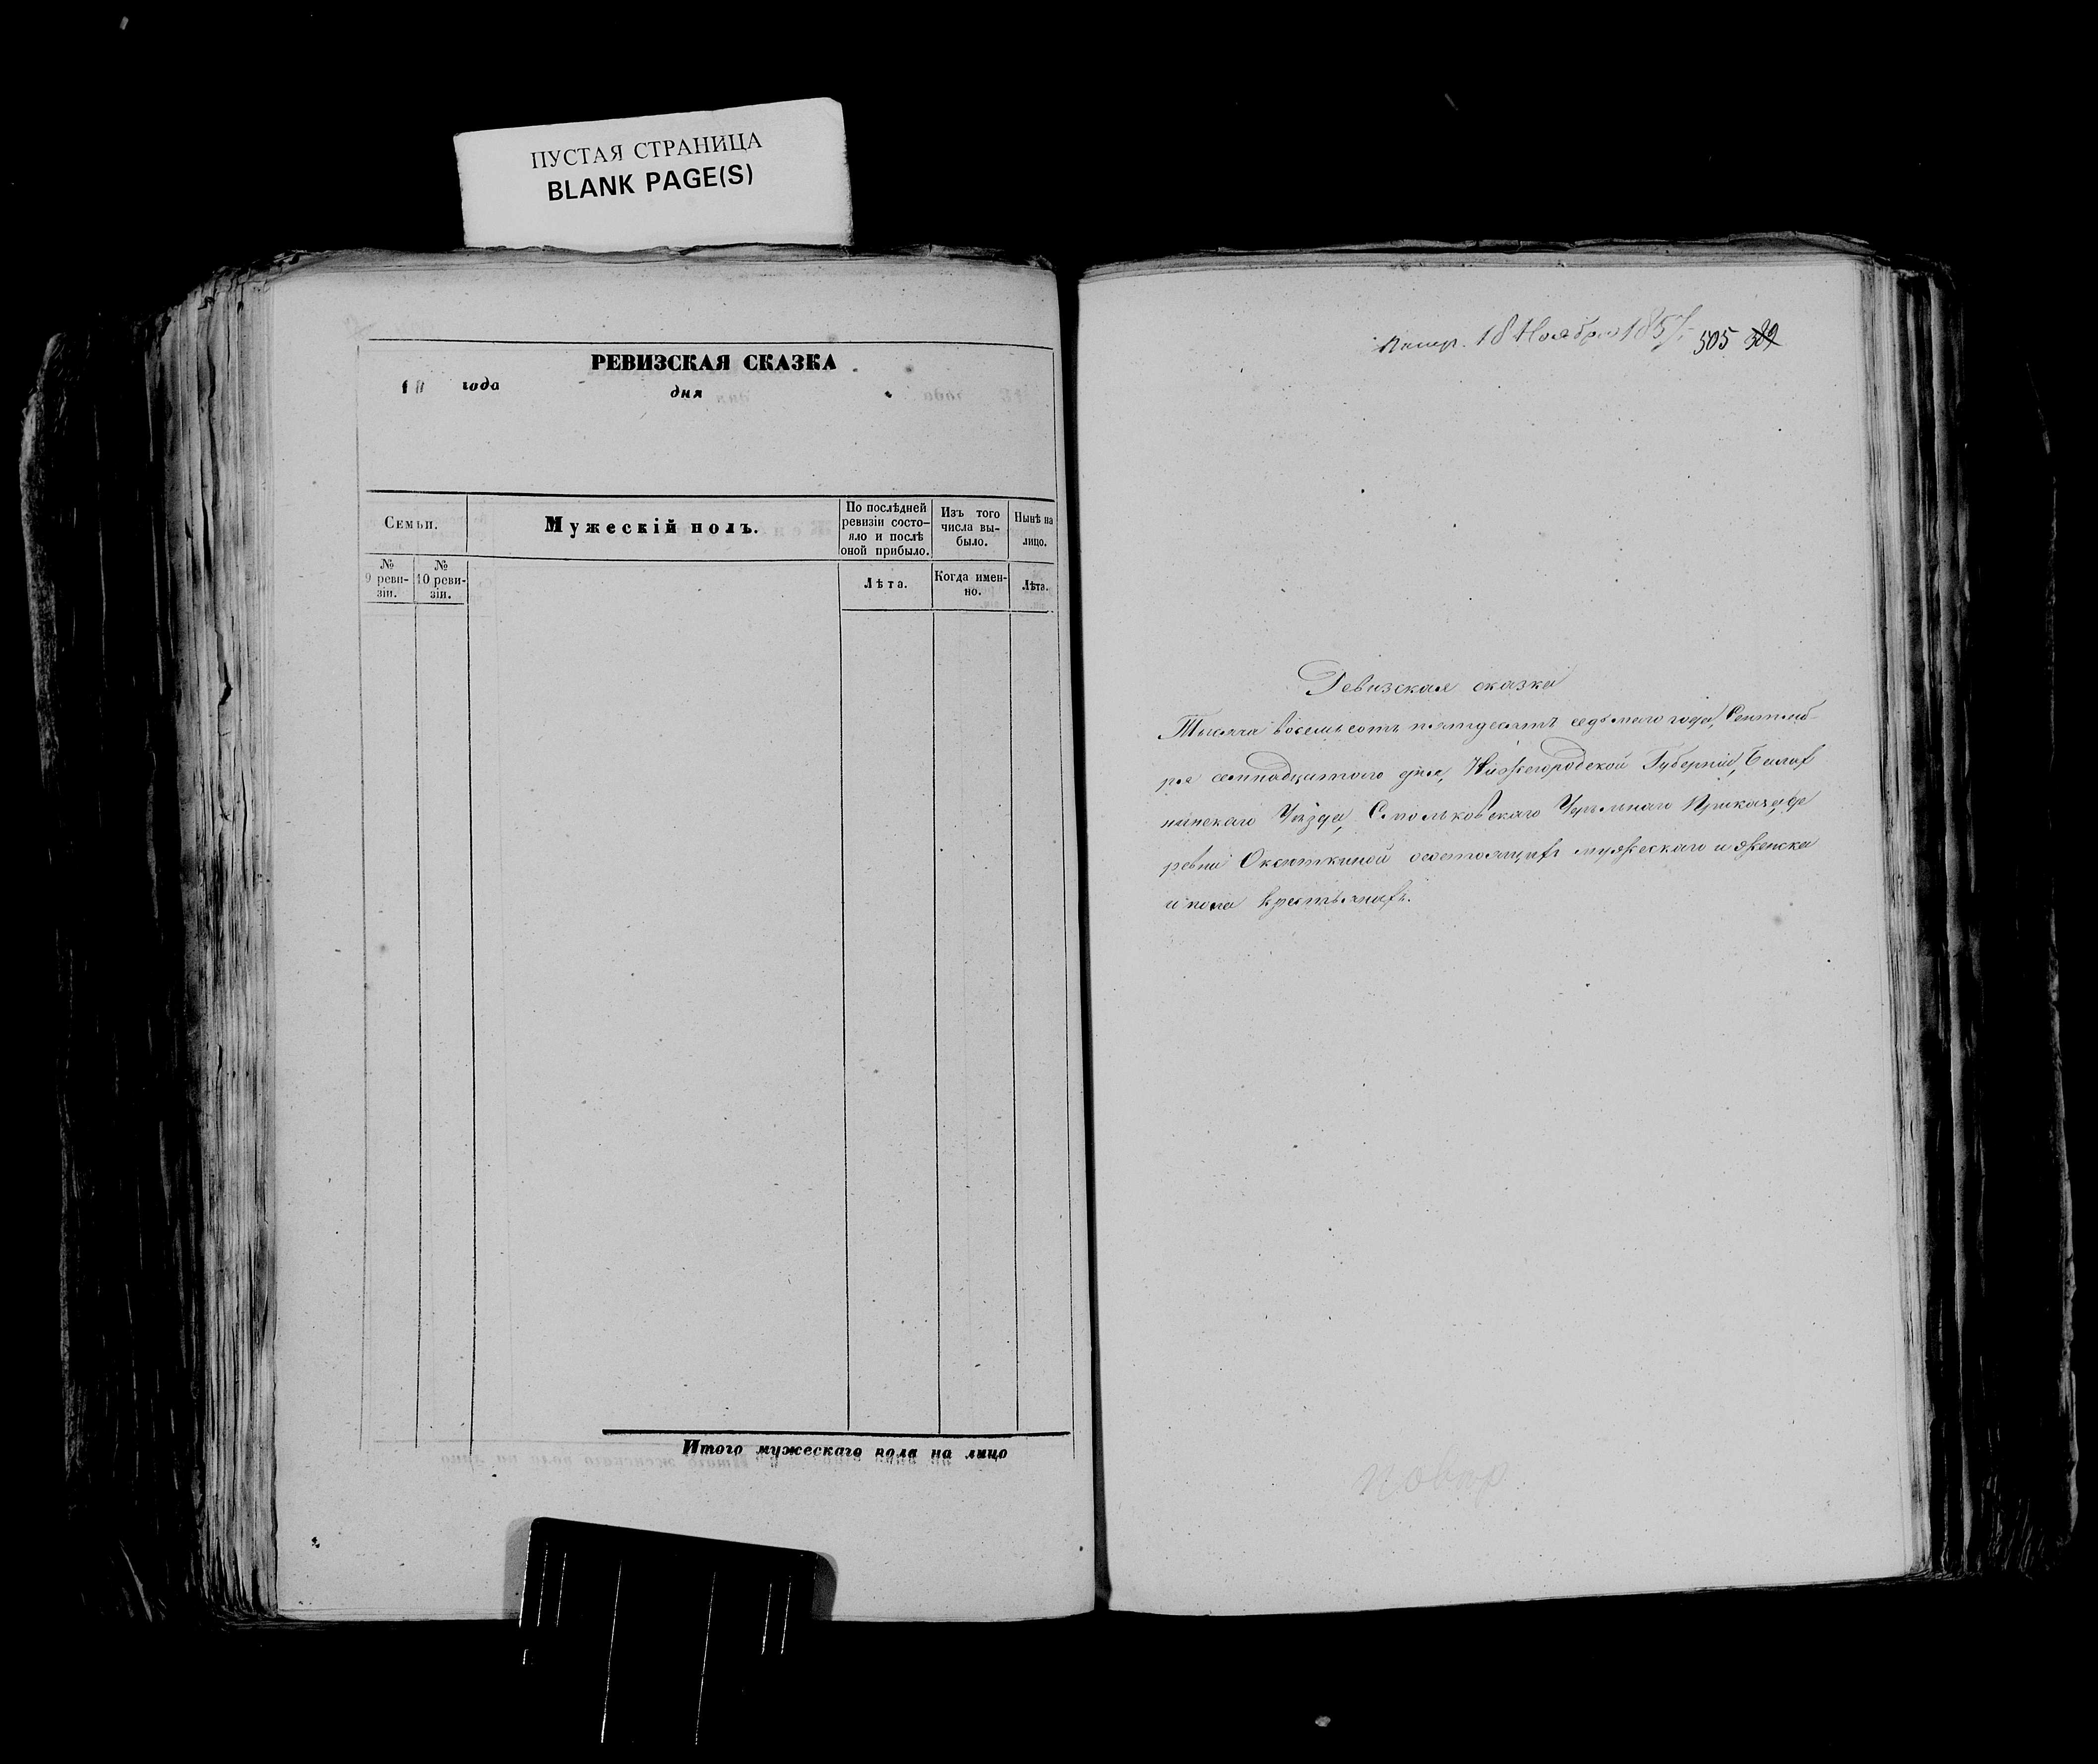 ПУСТАЯ СТРАНИЦА
BLANK PAGE(S)
РЕВИЗСКАЯ СКАЗКА
18 года дня
Семьи.
Мужескій полъ.
По послѣдней ревизіи состо-
яло и послѣ оной прибыло.
Изъ того числа вы-
было.
Нынѣ на лицо.
№ 9 реви-
зіи.
№ 10 реви-
зіи.
Лѣта.
Когда имен-
но.
Лѣта.
Итого мужескаго пола на лицо
18 Ноября 1857 505
Ревизская сказка
Тысяча восемьсотъ пятьдесятъ седьмаго года, Сентяб-
ря семнадцатаго дня, Нижегородской Губерніи, Балах
нинскаго Уѣзда, Удѣльнаго Приказа, де
ревни состоящихъ мужескаго и женска
го пола крестьянахъ.